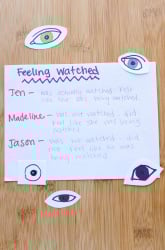 Feeling Watched
Jen - was actually watched. Felt
like she was being watched.
Madeline - was not watched. did
not feel like she was being
watched
Jason - was not watched. did
not feel like he was
being watched